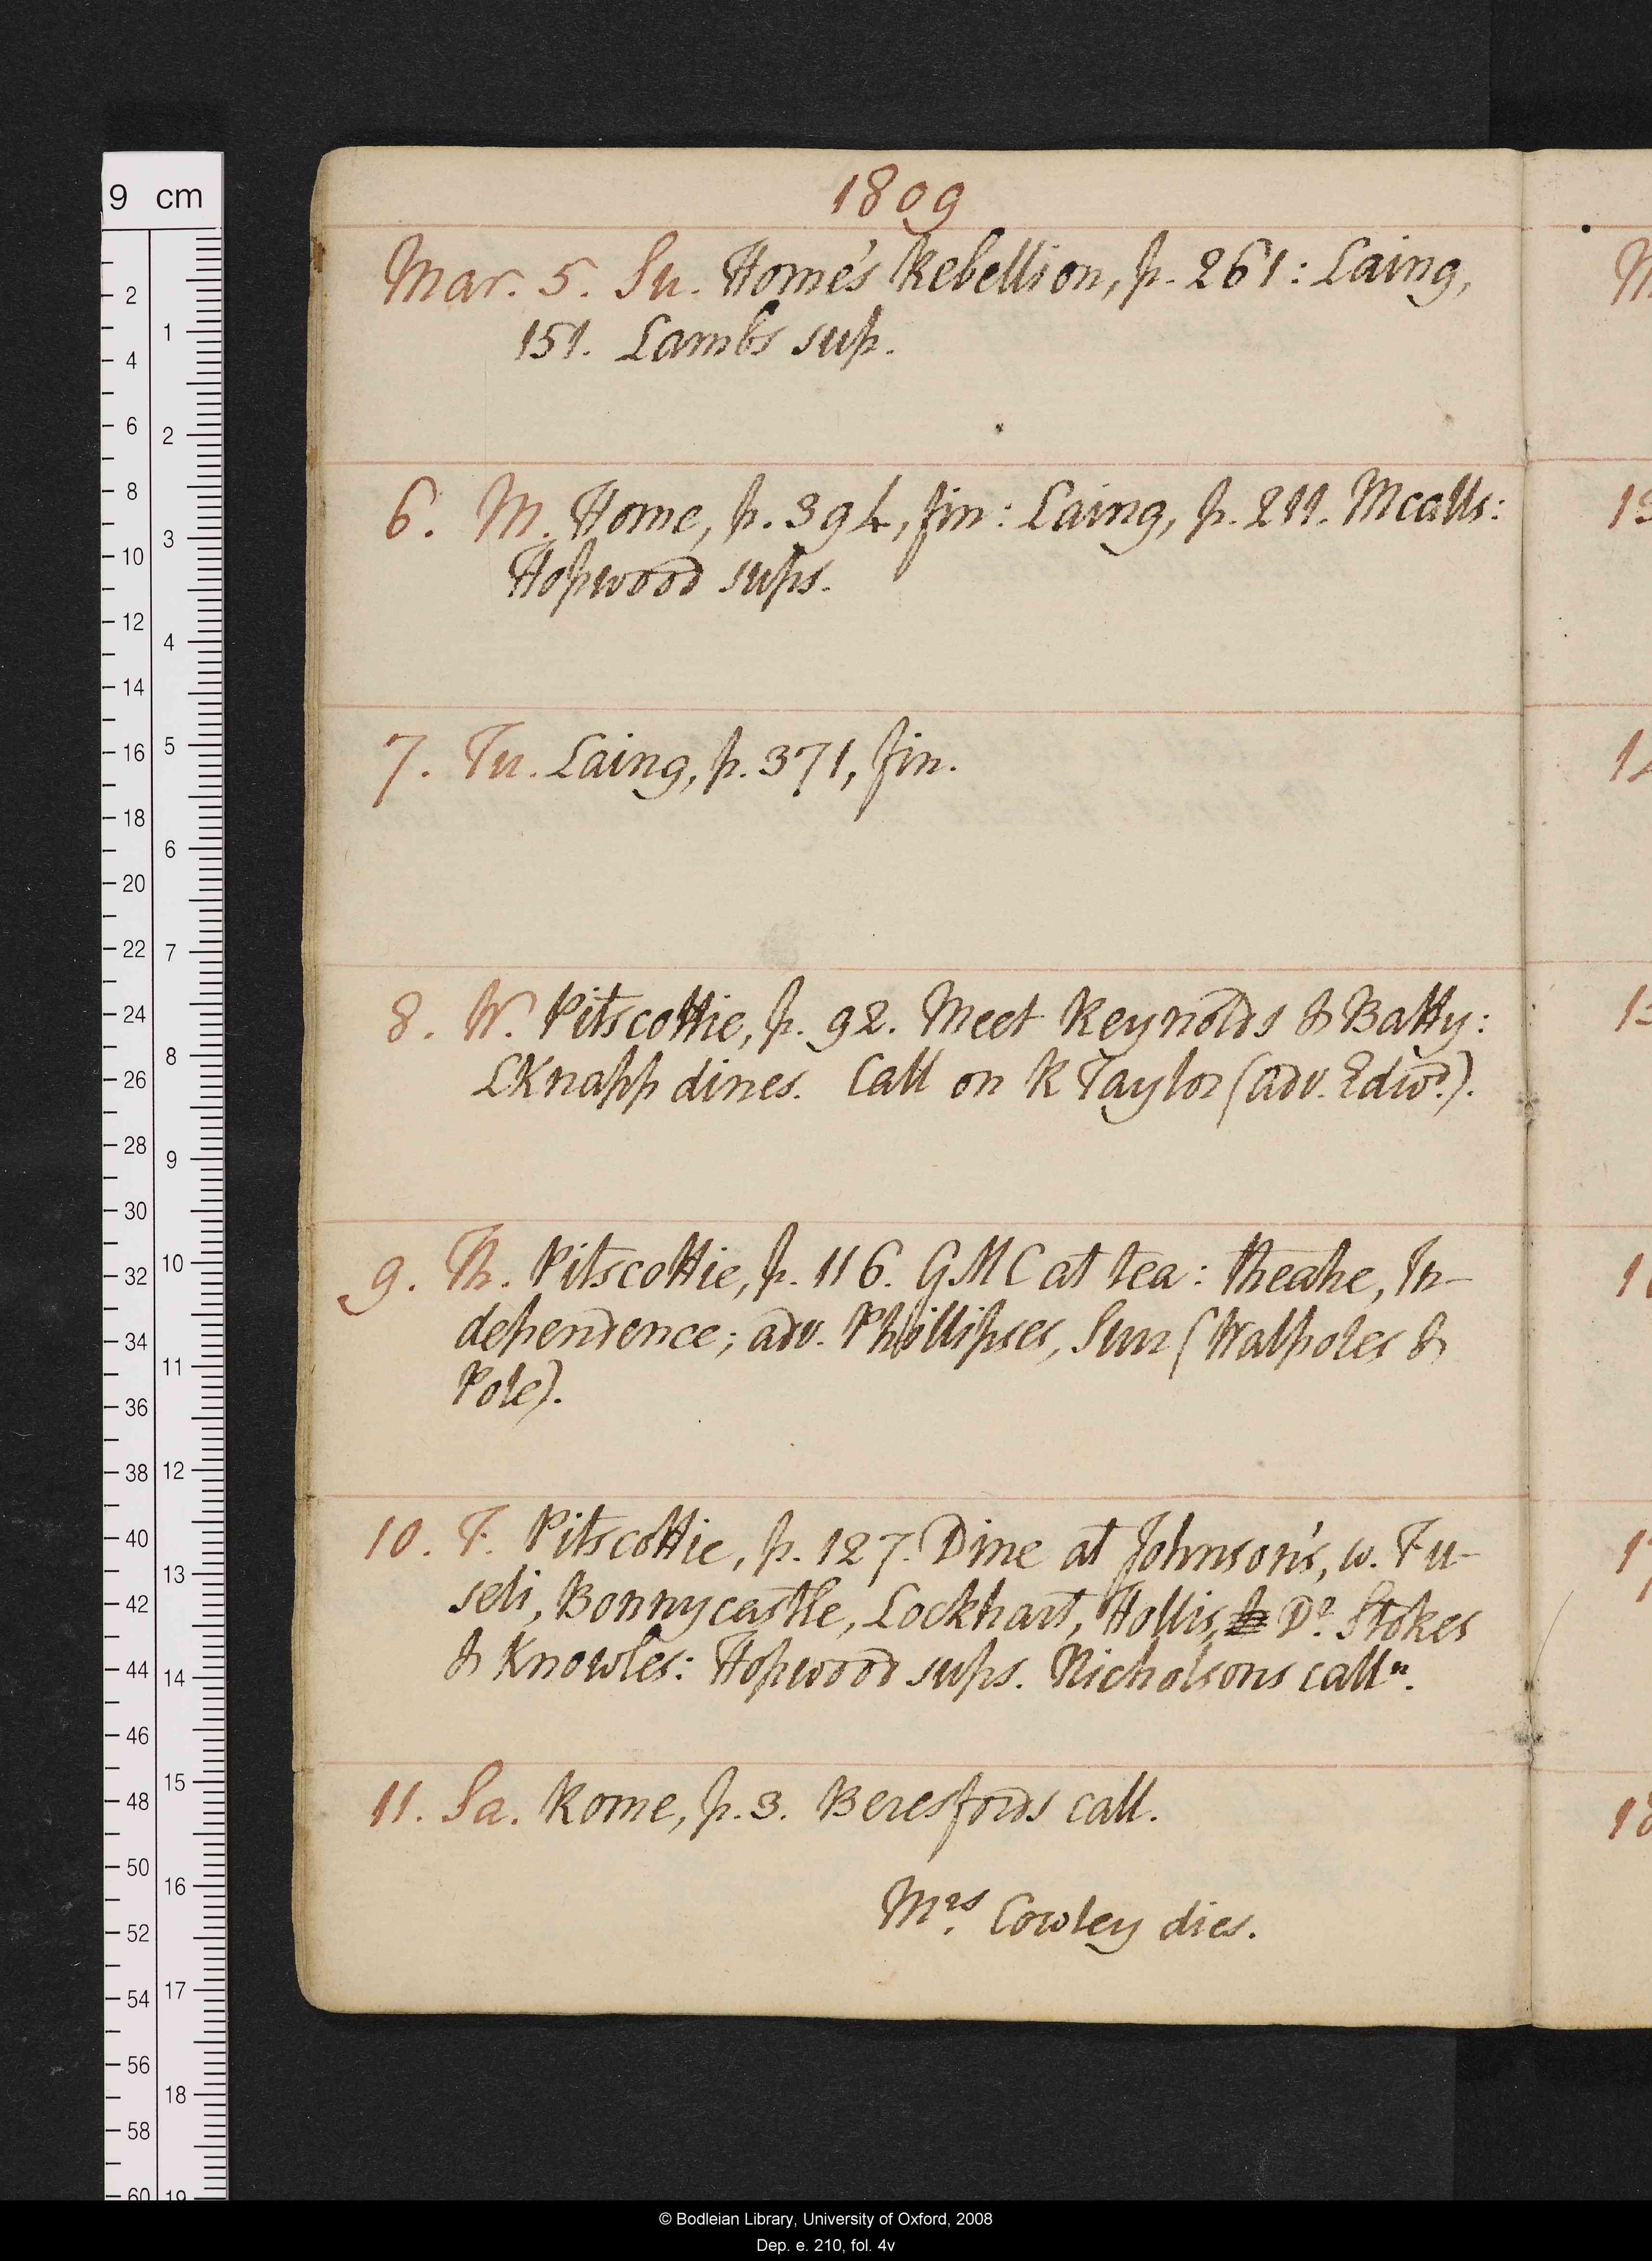 1809
Mar. 5. Su. Home's Rebellion, p. 261: Laing,
151. Lambs sup.
6. M. Home, p. 394, fin: Laing, p. 211. M calls:
Hopwood sups.
7. Tu. Laing, p. 371, fin.
8. W. Pitscottie, p. 92. Meet Reynolds & Batty:
LKnapp dines. Call on R Taylor (adv. Edwd.).
9. Th. Pitscottie, p. 116. GMC at tea: theatre, In-
dependence; adv. Phillipses, Surr (Walpoles &
Pole).
10. F. Pitscottie, p. 127. Dine at Johnson's, w. Fu-
seli, Bonnycastle, Lockhart, Hollis, Dr. Stokes
& Knowles: Hopwood sups. Nicholsons calln.
11. Sa. Rome, p. 3. Beresfords call.
Mrs. Cowley dies.
9 cm
2
1
4
6
2
8
3
10
12
4
14
16
5
18
6
20
22
7
24
8
26
28
9
30
10
32
34
11
36
38
12
40
13
42
44
14
46
15
48
50
16
52
17
54
56
18
58
60
19
© Bodleian Library, University of Oxford, 2008
Dep. e. 210, fol. 4v